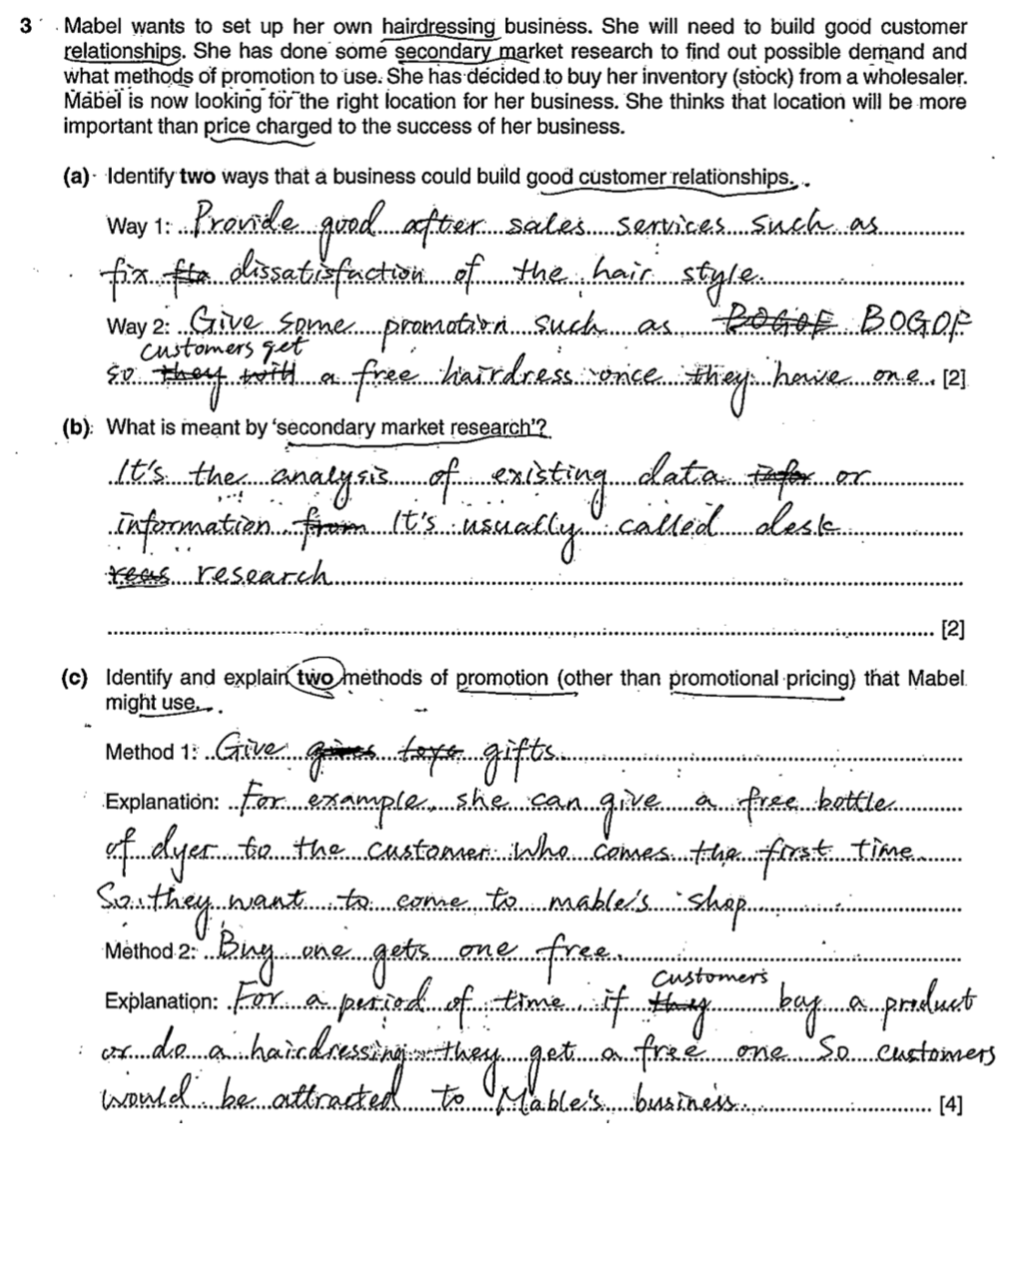 3 Mabel wants to set up her own hairdressing business. She will need to build good customer
relationships. She has done some secondary market research to find out possible demand and
what methods of promotion to use. She has decided to buy her inventory (stock) from a wholesaler.
Mabel is now looking for the right location for her business. She thinks that location will be more
important than price charged to the success of her business.
(a) Identify two ways that a business could build good customer relationships.
Way 1: Provide good after sales services such as
fix dissatisfaction of the hair style.
Way 2: Give some promotion such as BOGOF BOGOF
customers get
so they will a free hairdress once they have one. [2]
(b) What is meant by ‘secondary market research’?
It's the analysis of existing data infor or
information from It's usually called desk
reas research
[2]
(c) Identify and explain two methods of promotion (other than promotional pricing) that Mabel
might use.
Method 1: Give gives toys gifts.
Explanation: For example, she can give a free bottle
of dyer to the customer who comes the first time
So they want to come to mable's shop
Method 2: Buy one gets one free.
customers
Explanation: For a period of time, if they buy a product
or do a hairdressing they get a free one So customers
would be attracted to Mable's business. [4]